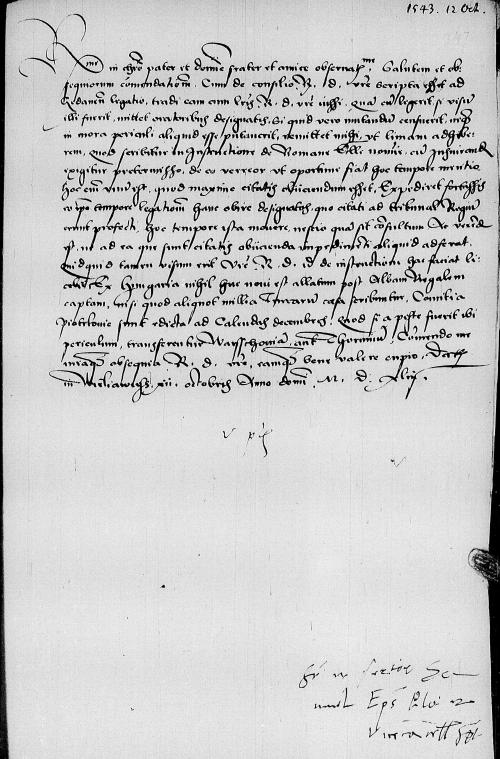 1543. 12 Oct.
R.me in chr̃o pater et domine frater et amice observat.me Salutem et ob-
sequiorum comendationem. Cum de consilio R. d. vr̃e scripta esset ad
legatio, tradi eam cum lr̃is R. d. vr̃e iussi, quam cum legerit, si visum
ibi fuerit, mittet oratoribus designatis. Si quid vero mutandum censuerit, neque
in mora periculi aliquid esse putaverit, remittet mihi, ut limam adhibe-
rem, quod scribitur in Instructione de Romane
exigitur pretermisso, de eo vereor ut oportune fiat hoc tempore mentio
hoc enim unum est, quod maxime citatis obiiciendum esset. Expediret fortassis
eo ipso tempore legationem hanc obire designatis, quo citati ad tribunal Regium
erunt profecti, hoc tempore ista movere, nescio quam sit consultum. Ac verendum
est, ne ad ea que sunt citatis obiicienda impedimenti aliquid adferat.
quidquid tamen visum erit Vr̃e R. d. id de instructione hac faciat li-
cebit. Ex Hungaria nihil huc novi est allatum post Albam Regalem
captam, nisi quod aliquot millia Turcarum cæsa scribuntur. Comitia
Piotrkovie sunt edicta ad Calendas decembris, quod si a peste fuerit ibi
periculum, transferentur Warschoviam, aut Thorunium. Comendo me
meaque obsequia R. d. vr̃e, eamque bene valere cupio. Dat.
in xii. octobris Anno domi. M. d. xliii.
Eps̃